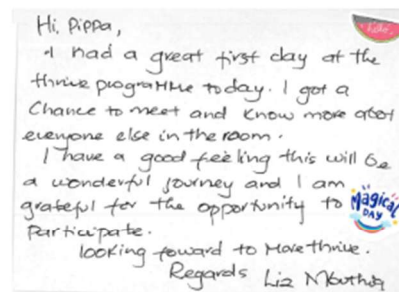 Hi, Pippa,
I had a great first day at the
thrive programme today. I got a
Chance to meet and know more abot
everyone else in the room.
I have a good feeling this will be
a wonderful journey and I am
grateful for the opportunity to
Participate.
Magical
DAY
looking foward to more thrive.
Regards Liz